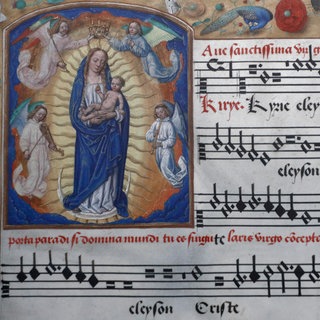 Aue sanctissima virgo
Kirye Kyrie eley
eleyson
porta paradisi domina mundi tu es singularis virgo concepta
eleyson Criste